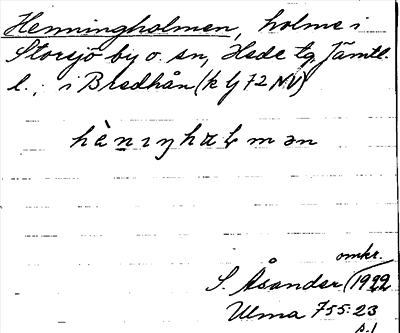 Henningholmen, holme i
Storsjö by o. sn, Hede tg, Jämtl.
l.; i Bredhån (k bl 72 NV)
hènıŋhɑɫmən
omkr.
S. Åsander (1922
Ulma 755:23